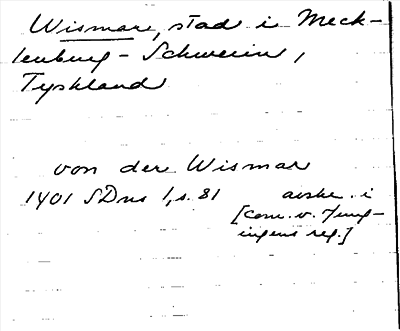 Wismar, stad i Meck-
lenburg-Schwerin,
Tyskland
von der Wismar
1401 SDns 1, s. 81 avskr. i
[Conr. v. Jung-
ingens reg.]